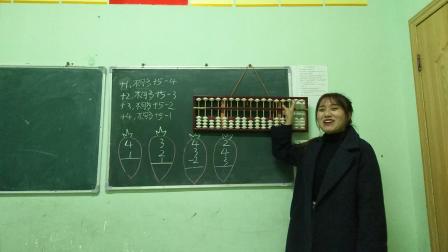 +1,不够+5-4
+2,不够+5-3
+3,不够+5-2
+4,不够+5-1
4 3 4 2
1 2 3 4
-2 3